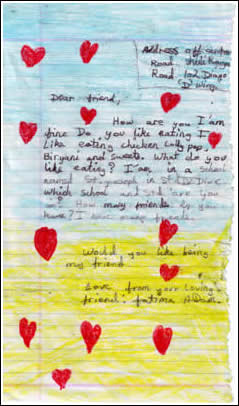 Address off
Road
Road 102
D wing
Dear friend,
How are you I am
fine Do, you like eating I
Like eating chicken Lollypop,
Biryani and sweets. What do you
like eating? I am in a school
named St joseph in
Which school and Std are you
in? How many friends do you
have? I have many friends.
Would you like being
my friend
Love from your Loving
friend. fatima